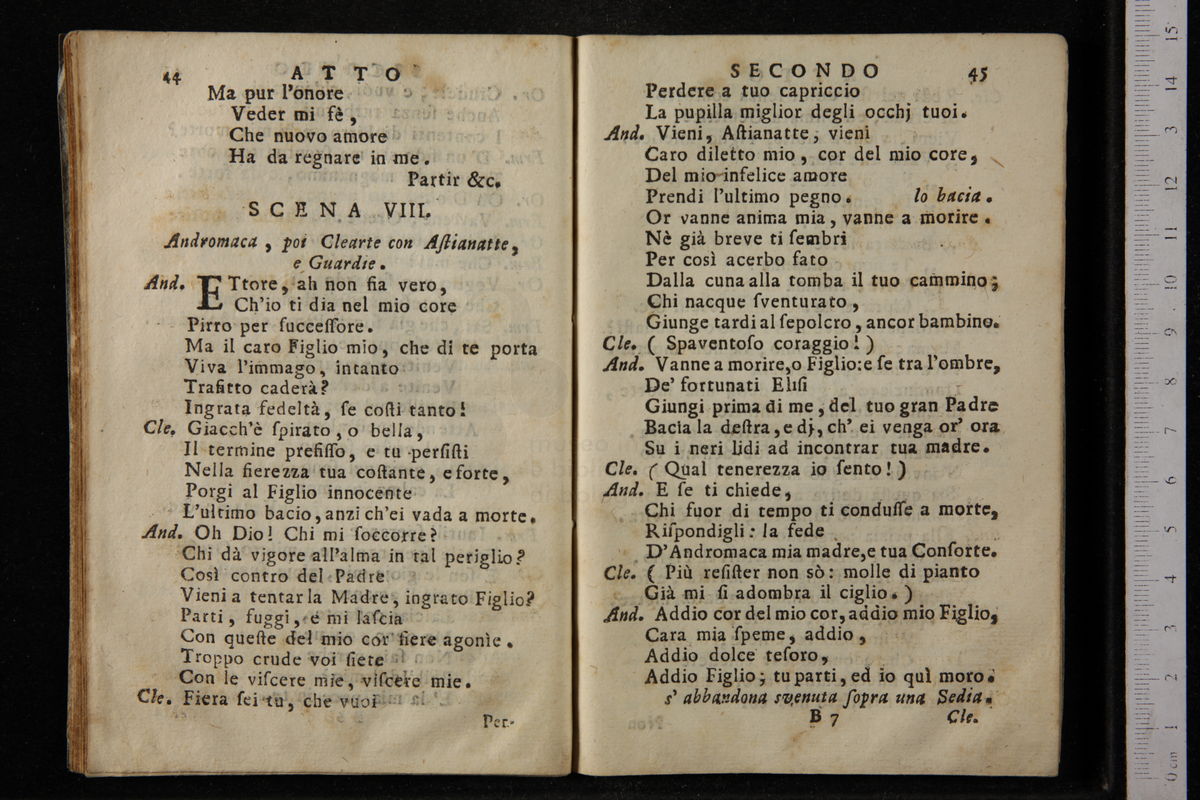 44 ATTO
Ma pur l'onore
Veder mi fè,
Che nuovo amore
Ha da regnare in me.
Partir &c.
SCENA VIII.
Andromaca, poi Clearte con Aſtianatte,
e Guardie.
And. ETtore, ah non ſia vero,
Ch'io ti dia nel mio core
Pirro per ſucceſſore.
Ma il caro Figlio mio, che di te porta
Viva l'immago, intanto
Trafitto caderà?
Ingrata fedeltà, ſe coſti tanto!
Cle. Giacch'è ſpirato, o bella,
Il termine prefiſſo, e tu perſiſti
Nella fierezza tua coſtante, e forte,
Porgi al Figlio innocente
L'ultimo bacio, anzi ch'ei vada a morte.
And. Oh Dio! Chi mi ſoccorre?
Chi dà vigore all'alma in tal periglio?
Così contro del Padre
Vieni a tentar la Madre, ingrato Figlio?
Parti, fuggi, e mi laſcia
Con queſte del mio cor fiere agonìe.
Troppo crude voi ſiete
Con le viſcere mie, viſcere mie.
Cle. Fiera ſei tu, che vuoi
Per-
SECONDO 45
Perdere a tuo capriccio
La pupilla miglior degli occhj tuoi.
And. Vieni, Aſtianatte, vieni
Caro diletto mio, cor del mio core,
Del mio infelice amore
Prendi l'ultimo pegno. lo bacia.
Or vanne anima mia, vanne a morire.
Nè già breve ti ſembri
Per così acerbo fato
Dalla cuna alla tomba il tuo cammino;
Chi nacque ſventurato,
Giunge tardi al ſepolcro, ancor bambino.
Cle. ( Spaventoſo coraggio! )
And. Vanne a morire, o Figlio: e ſe tra l'ombre,
De' fortunati Eliſi
Giungi prima di me, del tuo gran Padre
Bacia la deſtra, e dj, ch' ei venga or' ora
Su i neri lidi ad incontrar tua madre.
Cle. ( Qual tenerezza io ſento! )
And. E ſe ti chiede,
Chi fuor di tempo ti conduſſe a morte,
Riſpondigli: la fede
D'Andromaca mia madre, e tua Conſorte.
Cle. ( Più reſiſter non sò: molle di pianto
Già mi ſi adombra il ciglio. )
And. Addio cor del mio cor, addio mio Figlio,
Cara mia ſpeme, addio,
Addio dolce teſoro,
Addio Figlio; tu parti, ed io quì moro.
s' abbandona svenuta ſopra una Sedia.
B 7 Cle.
0 cm 1 2 3 4 5 6 7 8 9 10 11 12 13 14 15